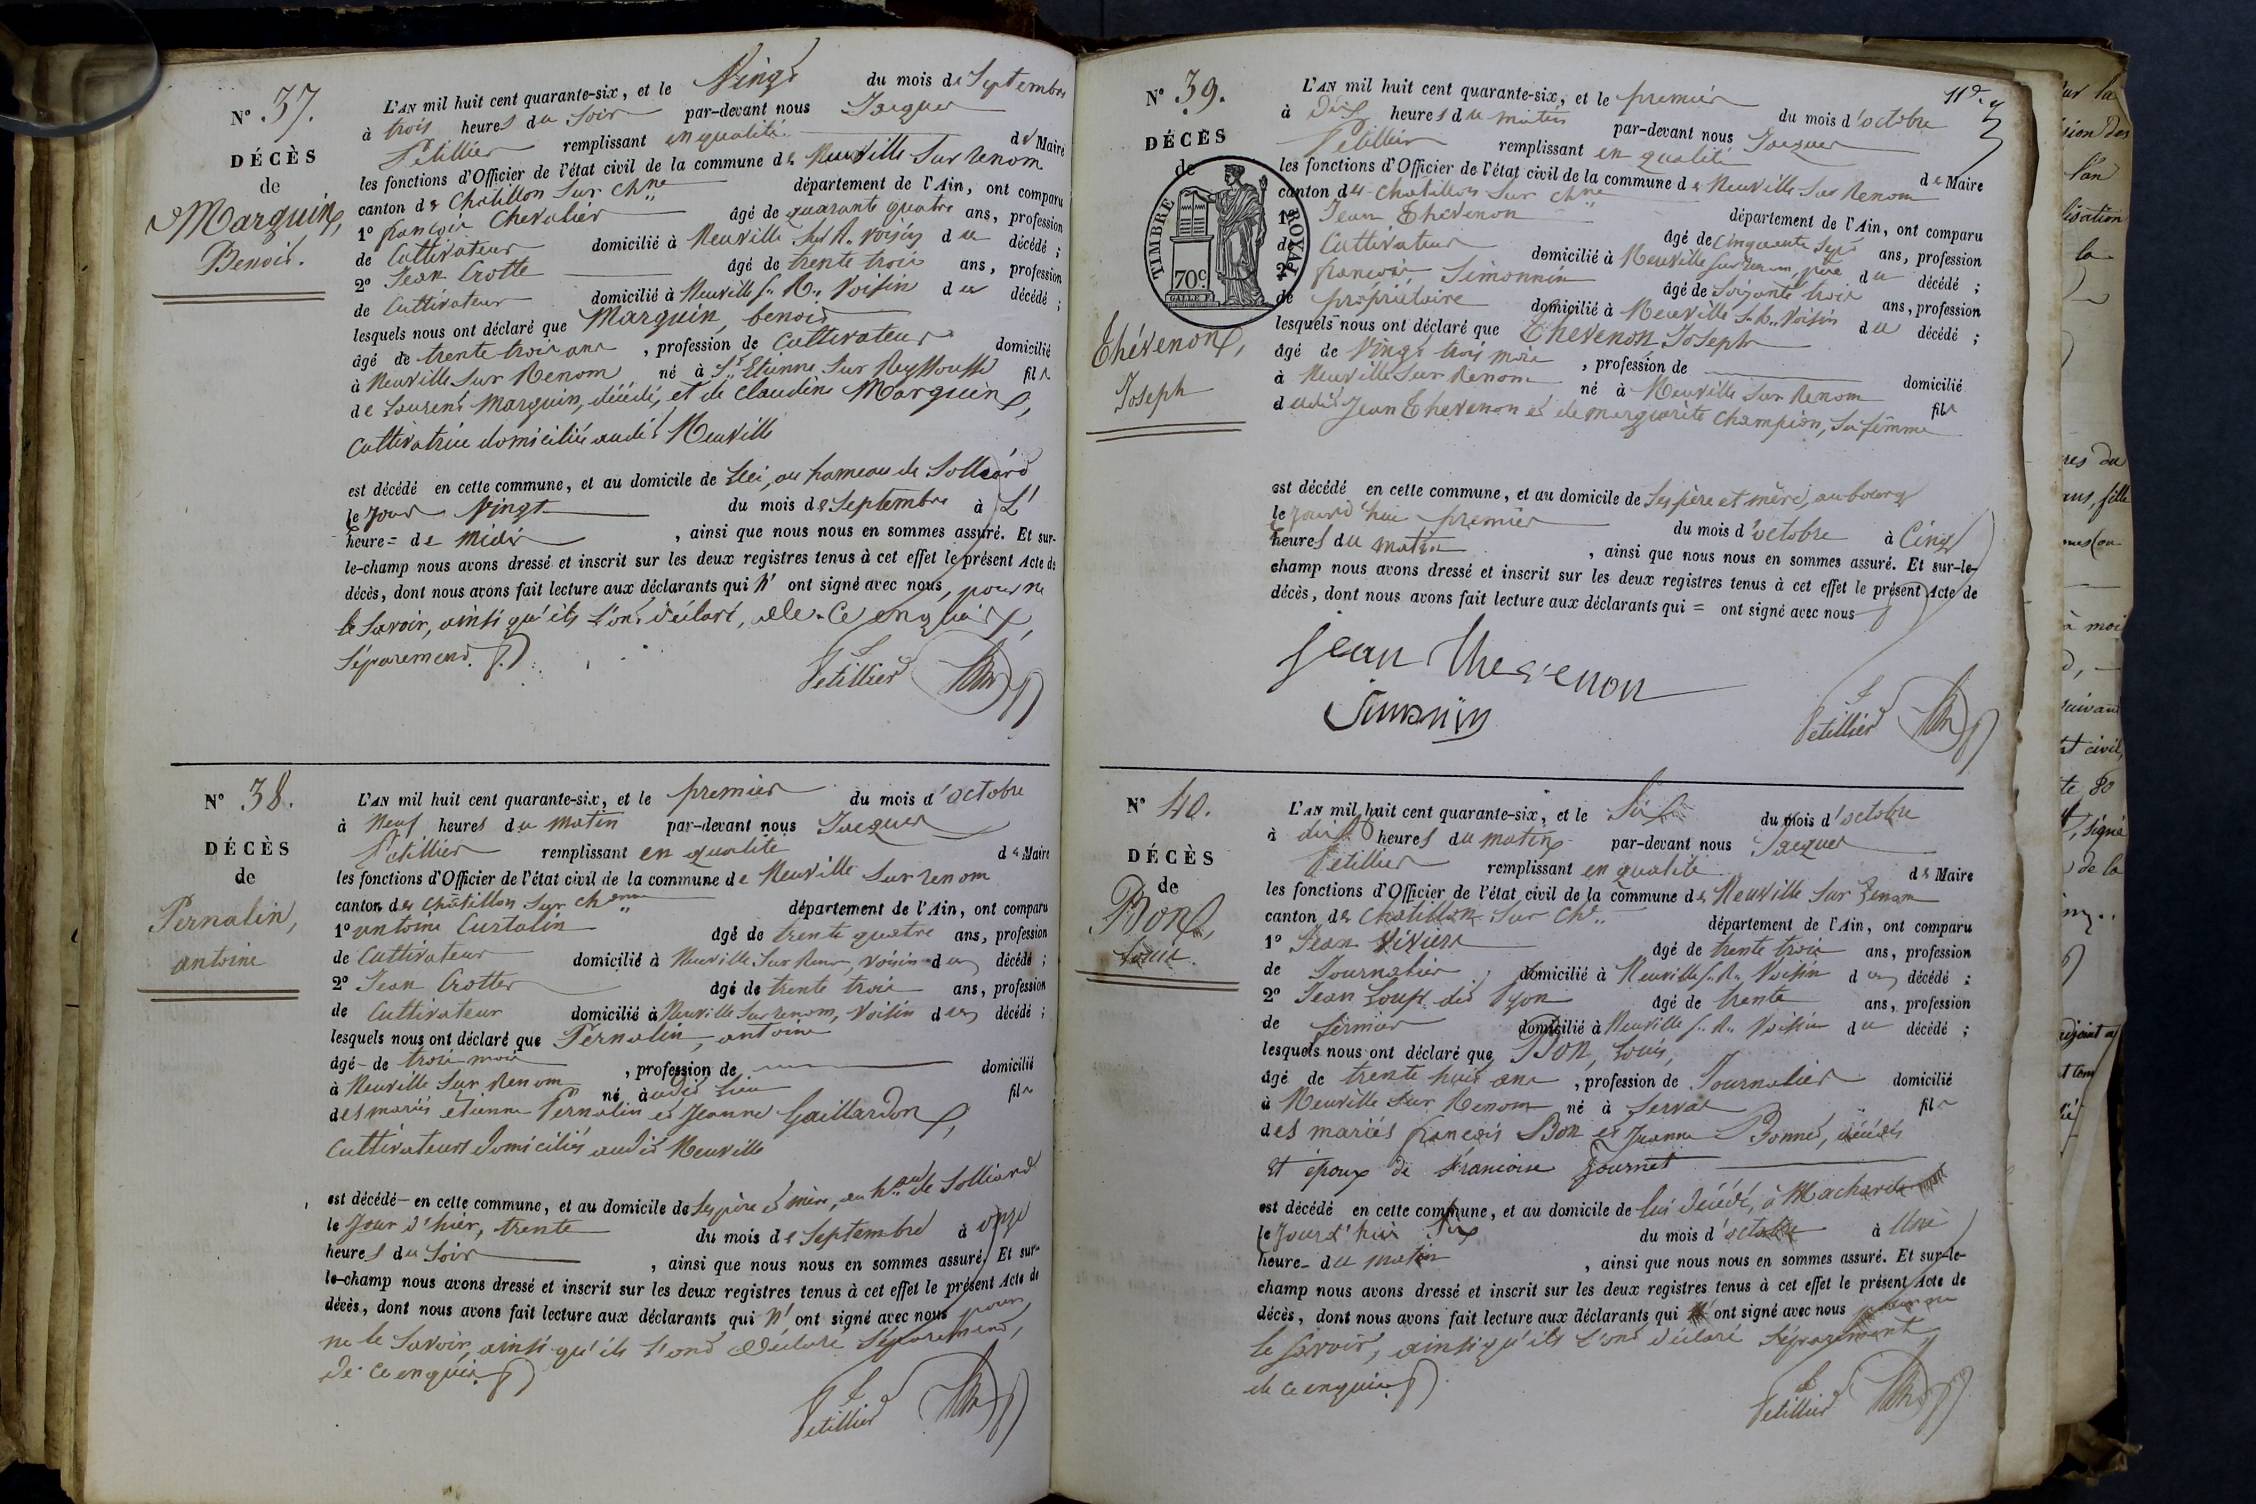 N° 37.
DÉCÈS
de
Marguin,
Benoit.
L'AN mil huit cent quarante-six, et le Vingt du mois de Septembre
à trois heures du soir par-devant nous Jacques
Petillier remplissant en qualité de Maire
les fonctions d'Officier de l'état civil de la commune de Neuville Sur Renom
canton de Chatillon Sur Chne département de l'Ain, ont comparu
1° françois Chevalier âgé de quarante quatre ans, profession
de Cultivateur domicilié à Neuville Sur R. voisin du décédé ;
2° Jean Crotte âgé de trente trois ans, profession
de Cultivateur domicilié à Neuville S. R.. Voisin du décédé ;
lesquels nous ont déclaré que Marguin, benoit
âgé de trente trois ans , profession de Cultivateur domicilié
à Neuville Sur Renom né à St Etienne Sur Reyssouse fils
de Laurent Marguin, décédé, et de Claudine Marguin,
Cultivatrice domiciliée audit Neuville
est décédé en cette commune, et au domicile de lui, au hameau de Solliard
le jour Vingt du mois de Septembre à L'
heure = de Midi , ainsi que nous nous en sommes assuré. Et sur-
le-champ nous avons dressé et inscrit sur les deux registres tenus à cet effet le présent Acte de
décès, dont nous avons fait lecture aux déclarants qui n' ont signé avec nous, pour ne
le Savoir, ainsi qu'ils l'ont déclaré, de ce enquis,
Séparement.
Petillier
N° 38.
DÉCÈS
de
Pernalin,
antoine
L'AN mil huit cent quarante-six, et le premier du mois d'octobre
à Neuf heures du matin par-devant nous Jacques
Petillier remplissant en qualité de Maire
les fonctions d'Officier de l'état civil de la commune de Neuville Sur renom
canton de Châtillon Sur Chne département de l'Ain, ont comparu
1° antoine Curtalin âgé de trente quatre ans, profession
de Cultivateur domicilié à Neuville Sur Renom, voisin du décédé ;
2° Jean Crotter âgé de trente trois ans, profession
de Cultivateur domicilié à Neuville Sur renom, Voisin du décédé ;
lesquels nous ont déclaré que Pernalin, antoine
âgé de trois mois , profession de domicilié
à Neuville Sur Renom né à audit Lieu fils
des mariés etienne Pernalin et Jeanne Gaillardon,
Cultivateurs domiciliés audit Neuville
est décédé en cette commune, et au domicile de Ses père et mère, au hau de Solliard
le jour d'hier, trente du mois de Septembre à onze
heures du Soir , ainsi que nous nous en sommes assuré. Et sur-
le-champ nous avons dressé et inscrit sur les deux registres tenus à cet effet le présent Acte de
décès, dont nous avons fait lecture aux déclarants qui n' ont signé avec nous pour
ne le Savoir, ainsi qu'ils l'ont déclaré Séparement,
de ce enquis.
Petillier
11e
N° 39.
DÉCÈS
de
TIMBRE ROYAL
70c
Thévenon,
Joseph
L'AN mil huit cent quarante-six, et le premier du mois d'octobre
à Dix heures du matin par-devant nous Jacques
Petillier remplissant en qualité de Maire
les fonctions d'Officier de l'état civil de la commune de Neuville Sur Renom
canton de Chatillon Sur Chne département de l'Ain, ont comparu
1° Jean Thevenon âgé de Cinquante Sept ans, profession
de Cultivateur domicilié à Neuville Sur renom, père du décédé ;
2° françois Simonnin âgé de Soixante trois ans, profession
de propriétaire domicilié à Neuville S. R.. Voisin du décédé ;
lesquels nous ont déclaré que Thevenon, Joseph
âgé de Vingt trois mois , profession de domicilié
à Neuville Sur Renom né à Neuville Sur Renom fils
dudit Jean Thevenon et de marguerite Champion, Sa femme
est décédé en cette commune, et au domicile de Ses père et mère, au bourg
le jourd'hui premier du mois d'octobre à Cinq
heures du matin , ainsi que nous nous en sommes assuré. Et sur-le-
champ nous avons dressé et inscrit sur les deux registres tenus à cet effet le présent Acte de
décès, dont nous avons fait lecture aux déclarants qui = ont signé avec nous
Jean Thevenon
Simonin
Petillier
N° 40.
DÉCÈS
de
Bon,
Louis.
L'AN mil huit cent quarante-six, et le Six du mois d'octobre
à dix heures du matin par-devant nous Jacques
Petillier remplissant en qualité de Maire
les fonctions d'Officier de l'état civil de la commune de Neuville Sur Renom
canton de Chatillon Sur Chne.. département de l'Ain, ont comparu
1° Jean Viviers âgé de trente trois ans, profession
de Journalier domicilié à Neuville S. R.. Voisin du décédé ;
2° Jean Loup dit Lyon âgé de trente ans, profession
de fermier domicilié à Neuville S. R.. Voisin du décédé ;
lesquels nous ont déclaré que Bon, Louis,
âgé de trente huit ans , profession de Journalier domicilié
à Neuville Sur Renom né à Servas fils
des mariés françois Bon et Jeanne Bonnet, décédés
Et époux de francoise Journet
est décédé en cette commune, et au domicile de lui décédé, à Machards
le jourd'hui Six du mois d'octobre à Une
heure du matin , ainsi que nous nous en sommes assuré. Et sur-le-
champ nous avons dressé et inscrit sur les deux registres tenus à cet effet le présent Acte de
décès, dont nous avons fait lecture aux déclarants qui n' ont signé avec nous pour ne
le Savoir, ainsi qu'ils l'ont déclaré Séparement
de ce enquis
Petillier